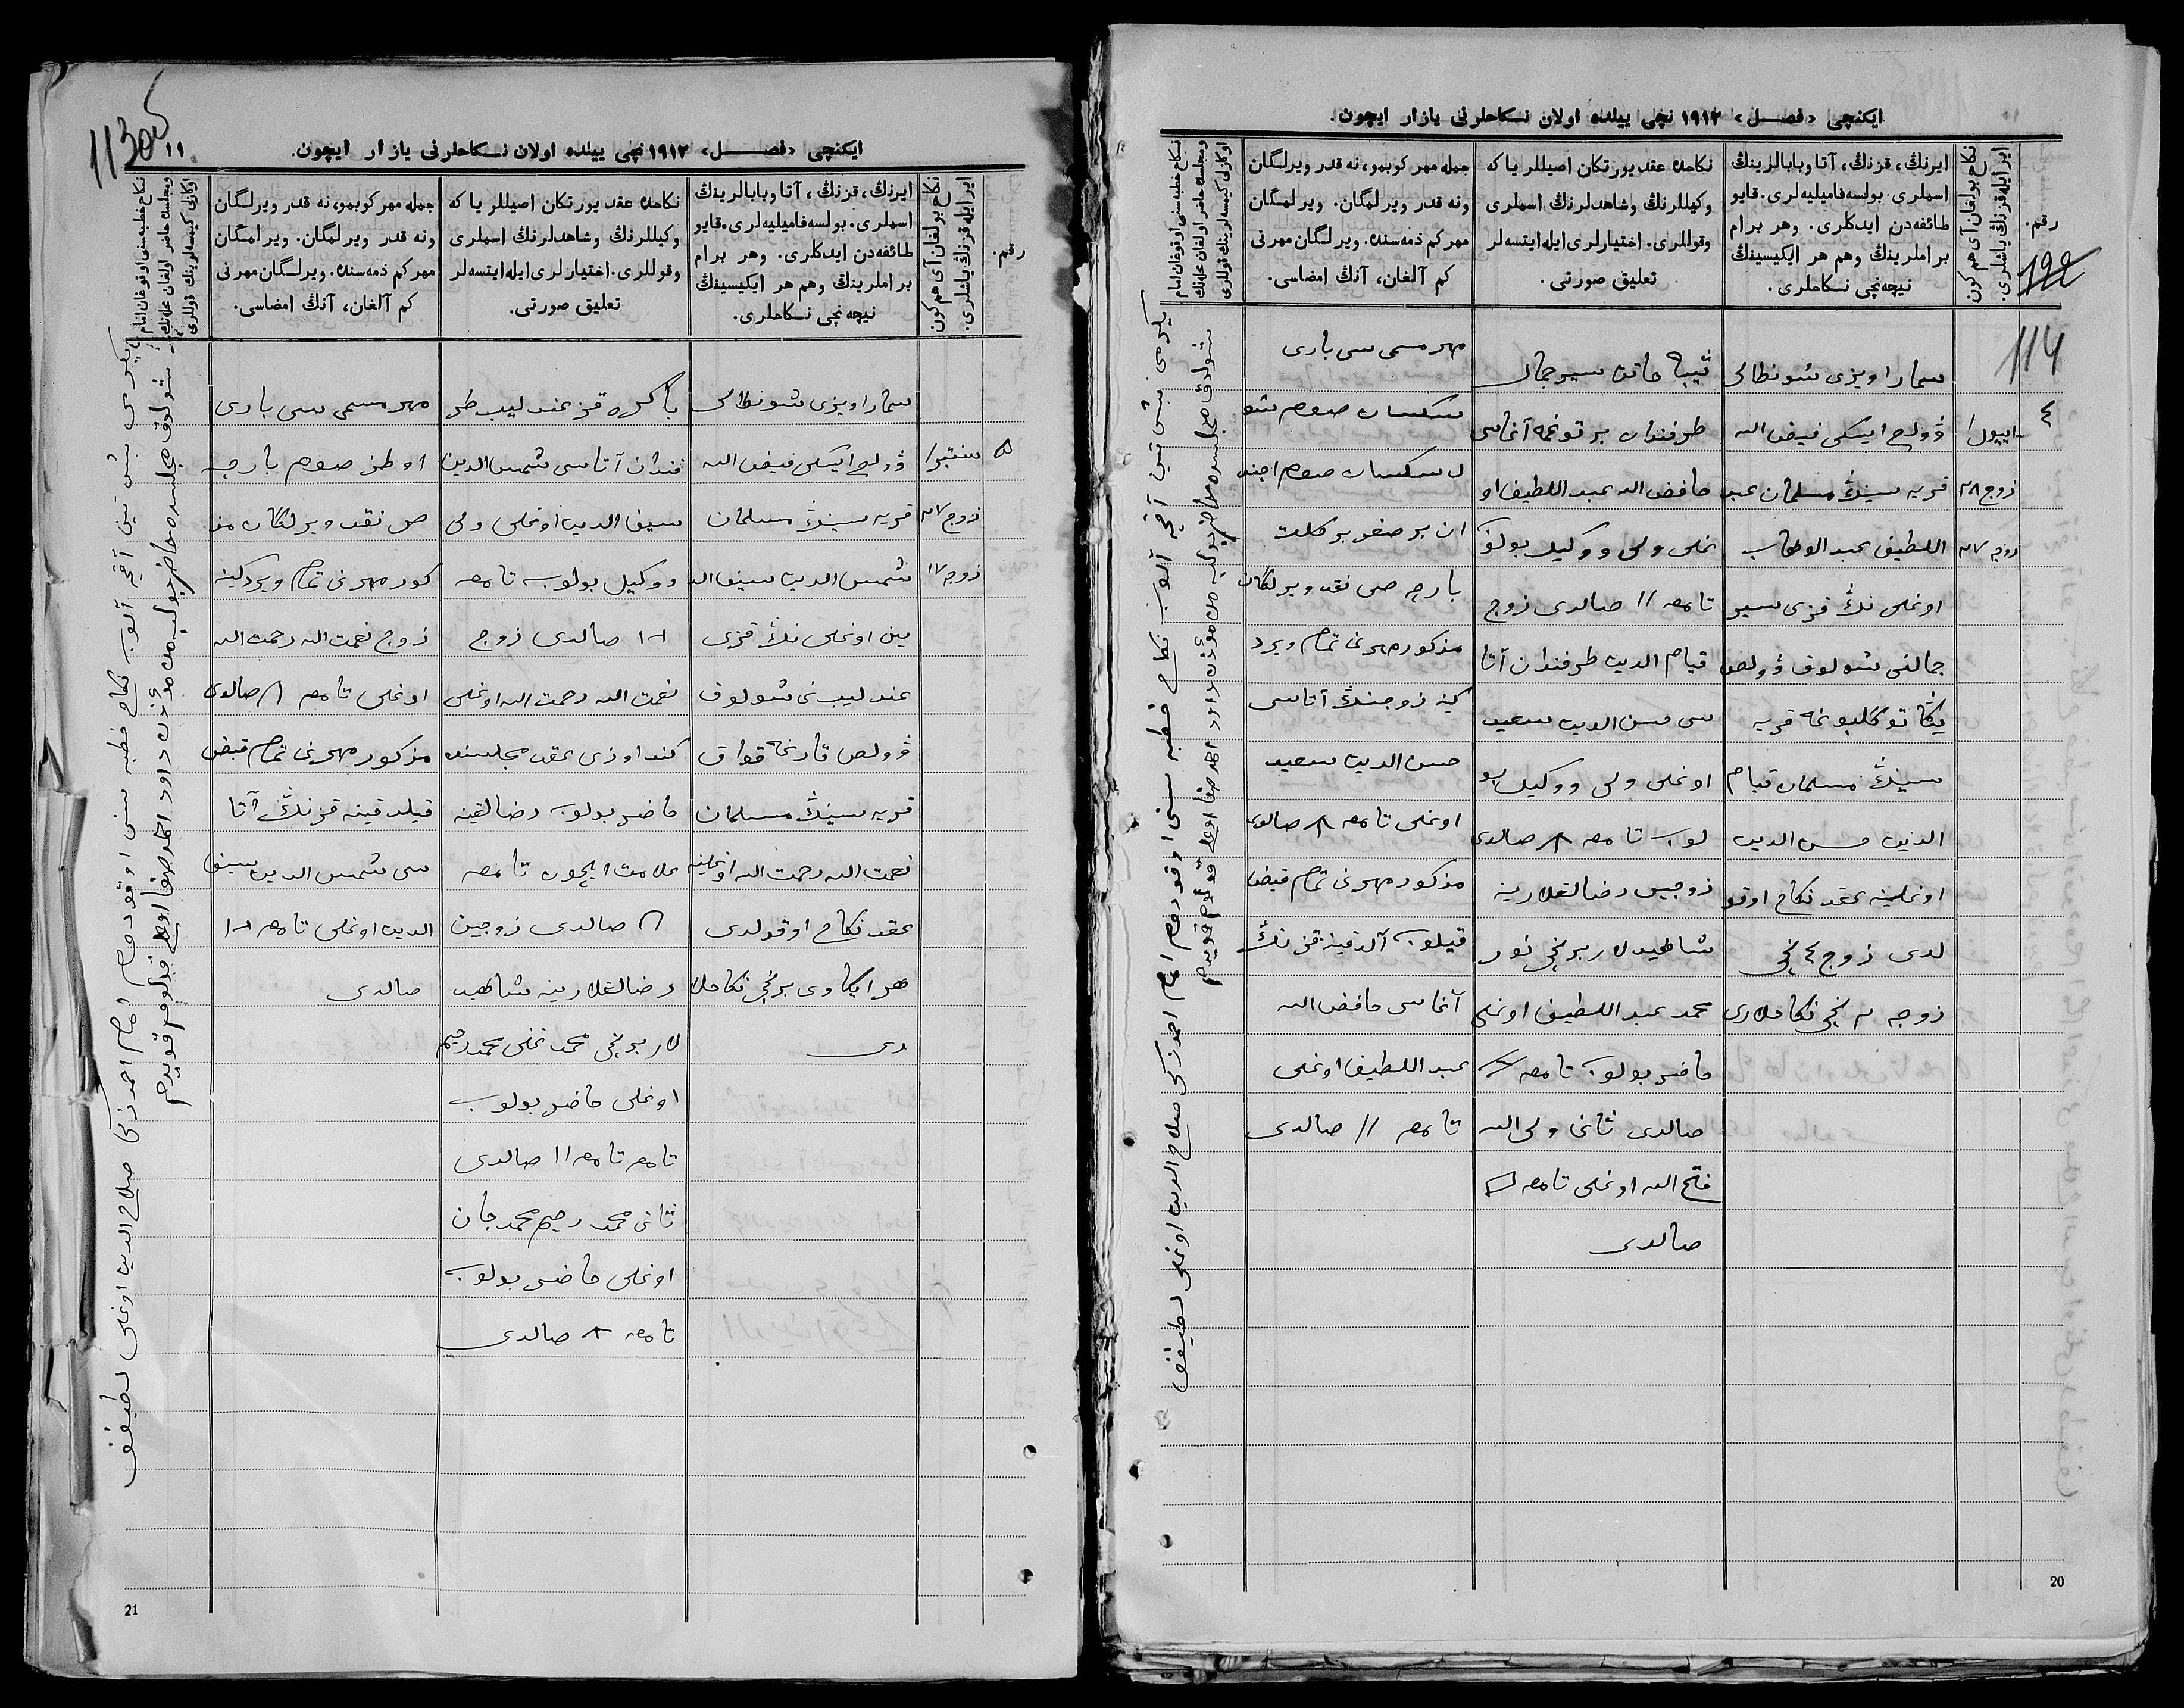 ایکنچی «فصل» ۱۹۱۲ نچی ییلده اولان نکاحلرنی یازار ایچون.
رقم.
ایر ایله قزنڭ یاشلری.
نکاح بولغان آی هم کون
ایرنڭ، قزنڭ، آتا و بابالرینڭ
اسملری. بولسه فامیلیه‌لری. قایو
طائفه‌دن ایدکلری. وهر برام
براملرینڭ وهم هر ایکیسینڭ
نیچه‌نچی نکاحلری.
نکاحده عقد یورتکان اصیللر یا که
وکیللرنڭ وشاهدلرنڭ اسملری
وقوللری. اختیارلری ایله ایتسه‌لر
تعلیق صورتی.
جمله مهر کوبمو، نه قدر ویرلگان
ونه قدر ویرلمگان. ویرلمگان
مهر کم ذمه‌سنده. ویرلگان مهرنی
کم آلغان، آنڭ امضاسی.
نکاح خطبه‌سنی اوقوغان امام
ومجلسده حاضر اولغان علمانڭ
اوکازلی کیمسه‌لرینڭ قوللری
114
٤
ایول ١
زوج ٢٨
زوجه ٢٧
سمار اویزی شونطالی
ڤولص ایسکی فیض الله
قریه سینڭ مسلمان عبد
اللطیف عبد الوهاب
اوغلی نڭ قزی سیر
جمالنی شولوق ڤولص
یڭا توکلبوغه قریه
سینڭ مسلمان قیام
الدین حسن الدین
اوغلینه عقد نکاح اوقو
لدی زوج ٤ نچی
زوجه ٢ نچی نکاحلاری
ثیبه خاتون سیر جمال
طرفندان بر توغمه آغاسی
حافض الله عبد اللطیف او
غلی ولی و وکیل بولوب
تامغه // صالدی زوج
قیام الدین طرفندان آتا
سی حسن الدین سعید
اوغلی ولی و وکیل بو
لوب تامغه صالدی
زوجین رضالقلارینه
شاهیدلار برنچی نور
محمد عبد اللطیف اوغلی
حاضر بولوب تامغه
صالدی ثانی ولی الله
فتح الله اوغلی تامغه
صالدی
مهر مسمی سی باری
سکسان صوم شو
ل سکسان صوم اچند
ان بر صغر بر کلت
بارچه صی نقد ویرلکان
مذکور مهرنی تمام ویرد
کینه زوجینڭ آتاسی
حسن الدین سعید
اوغلی تامغه صالدی
مذکور مهرنی تمام قبض
قیلوب آلدقینه قزنڭ
آغاسی حافض الله
عبد اللطیف اوغلی
تامغه // صالدی
یکرمی بش تین آقچه آلوب نکاح خطبه سنی اوقودم امام احمد زکی صلاح الدین اوغلی لطیفف
شولوق مجلسده حاضر بولیب من مؤذن داود احمد صفا اوغلی قولوم قویدم
20
11305
١١
ایکنچی «فصل» ۱۹۱۲ نچی ییلده اولان نکاحلرنی یازار ایچون.
رقم.
ایر ایله قزنڭ یاشلری.
نکاح بولغان آی هم کون
ایرنڭ، قزنڭ، آتا و بابالرینڭ
اسملری. بولسه فامیلیه‌لری. قایو
طائفه‌دن ایدکلری. وهر برام
براملرینڭ وهم هر ایکیسینڭ
نیچه‌نچی نکاحلری.
نکاحده عقد یورتکان اصیللر یا که
وکیللرنڭ وشاهدلرنڭ اسملری
وقوللری. اختیارلری ایله ایتسه‌لر
تعلیق صورتی.
جمله مهر کوبمو، نه قدر ویرلگان
ونه قدر ویرلمگان. ویرلمگان
مهر کم ذمه‌سنده. ویرلگان مهرنی
کم آلغان، آنڭ امضاسی.
نکاح خطبه‌سنی اوقوغان امام
ومجلسده حاضر اولغان علمانڭ
اوکازلی کیمسه‌لرینڭ قوللری
٥
سنتبر ١
زوج ٢٧
زوجه ١٧
سمار اویزی شونطالی
ڤولص ایسکی فیض الله
قریه سینڭ مسلمان
شمس الدین سیف الد
ین اوغلی نڭ قزی
عندلیب نی شولوق
ڤولص قارغه قواق
قریه سینڭ مسلمان
نعمت الله رحمت الله اوغلینه
عقد نکاح اوقولدی
هر ایکاوی برنچی نکاحلا
ری
باکره قز عندلیب طر
فندان آتاسی شمس الدین
سیف الدین اوغلی ولی
و وکیل بولوب تامغه
صالدی زوج
نعمت الله رحمت الله اوغلی
کند اوزی عقد مجلسنده
حاضر بولوب رضالقینه
علامت ایچون تامغه
صالدی زوجین
رضالقلارینه شاهید
لار برنچی محمد غنی محمد رحیم
اوغلی حاضر بولوب
تامغه تامغه ١١ صالدی
ثانی محمد رحیم محمد جان
اوغلی حاضر بولوب
تامغه صالدی
مهر مسمی سی باری
اوطز صوم بارچه
صی نقد ویرلکان مذ
کور مهرنی تمام ویردکینه
زوج نعمت الله رحمت الله
اوغلی تامغه صالدی
مذکور مهرنی تمام قبض
قیلدقینه قزنڭ آتا
سی شمس الدین سیف
الدین اوغلی تامغه
صالدی
یکرمی بش تین آقچه آلوب نکاح خطبه سنی اوقودم امام احمد زکی صلاح الدین اوغلی لطیفف
شولوق مجلسده حاضر بولیب من مؤذن داود احمد صفا اوغلی قولوم قویدم
21